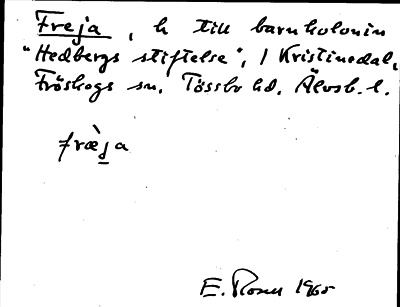 Freja, h till barnkolonin
"Hedbergs stiftelse", / Kristinedal,
Fröskogs sn. Tössbo hd. Älvsb. l.
fræ̀ja
E. Rosén 1965